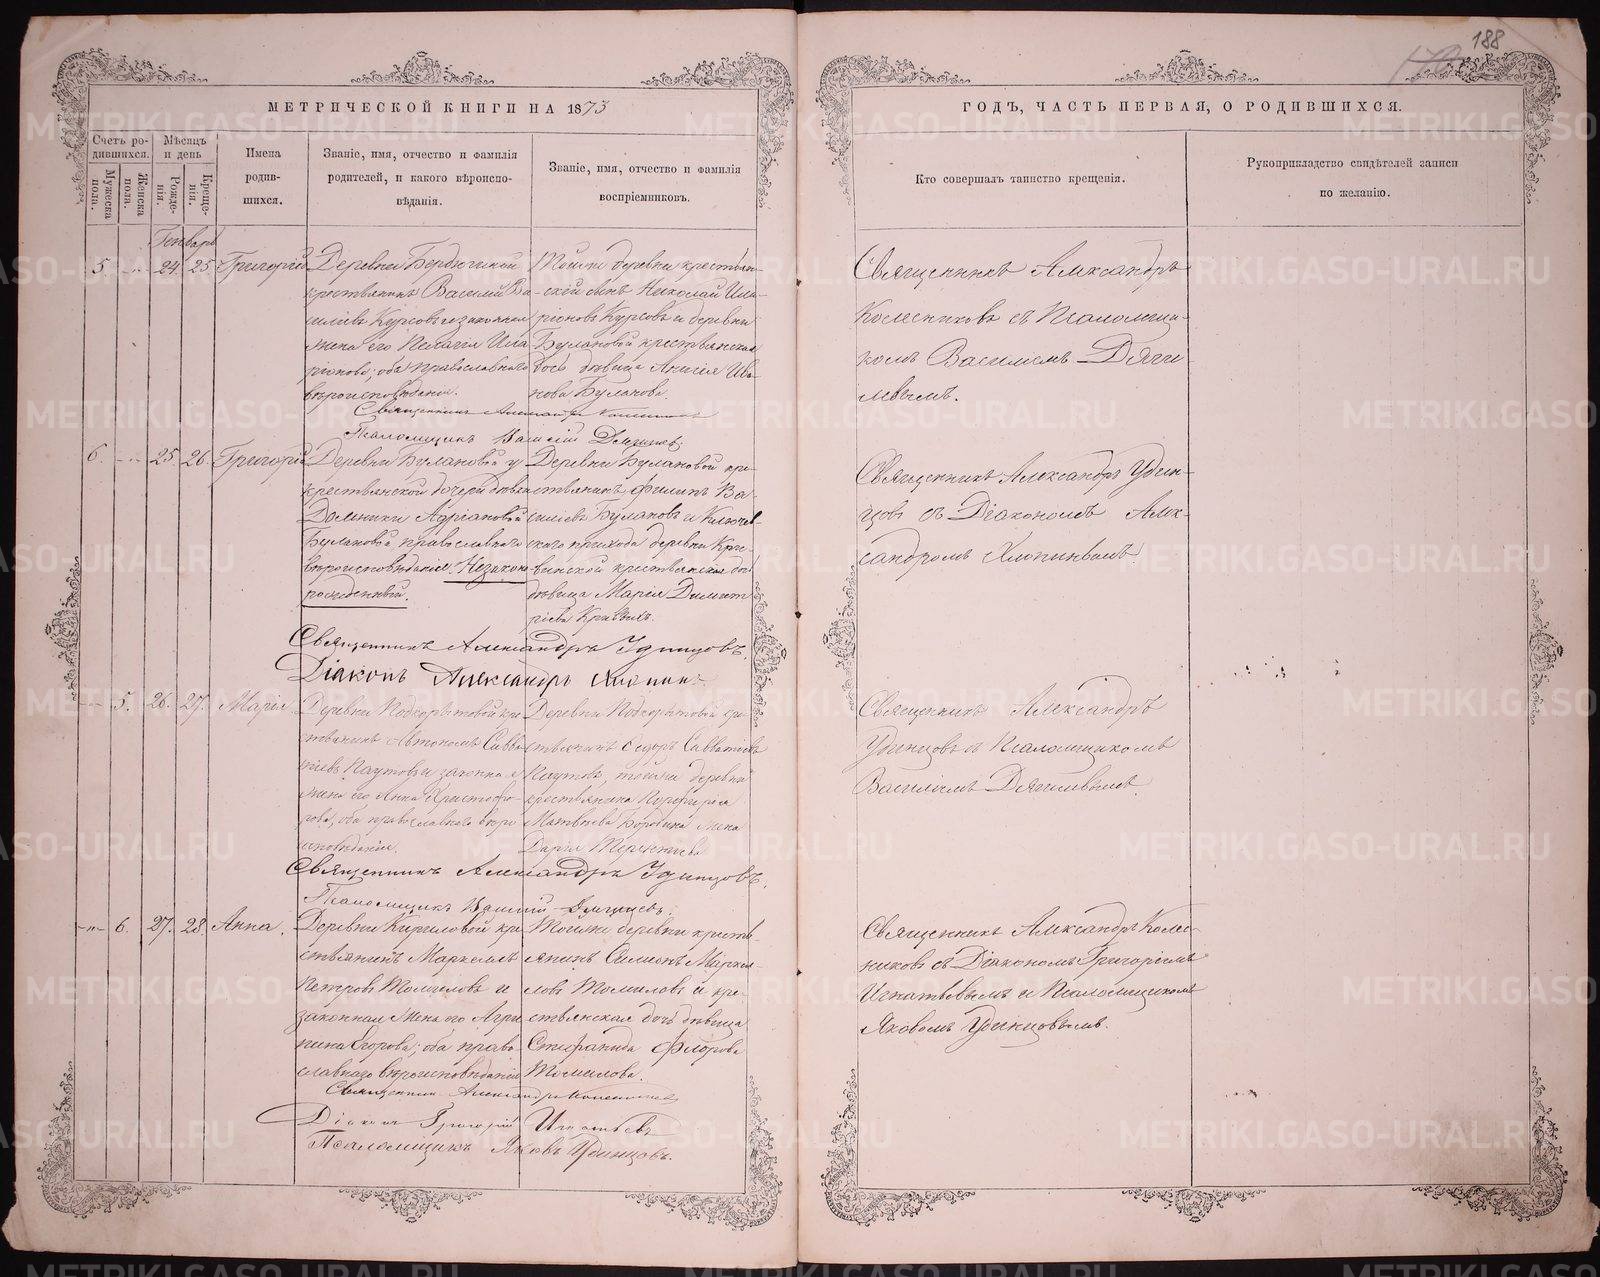 188
МЕТРИЧЕСКОЙ КНИГИ НА 1873
ГОДЪ, ЧАСТЬ ПЕРВАЯ, О РОДИВШИХСЯ.
Счетъ ро-
дившихся.
Мужеска
пола.
Женска
пола.
Мѣсяцъ
и день
Рожде-
нія.
Креще-
нія.
Имена
родив-
шихся.
Званіе, имя, отчество и фамилія
родителей, и какого вѣроиспо-
вѣданія.
Званіе, имя, отчество и фамилія
воспріемниковъ.
Кто совершалъ таинство крещенія.
Рукоприкладство свидѣтелей записи
по желанію.
Генварь
5. 24. 25. Григорій
Деревни
крестьянинъ Василий Ва-
силіевъ Курсовъ и законная
жена его Пелагія Ила
ріонова; оба православнаго
вѣроисповѣданія.
Тойже деревни крестьян-
ской сынъ Николай Ила-
ріоновъ Курсовъ и деревни
Булановой крестьянская
дочь дѣвица Анисія Ива-
нова Буланова.
Священникъ Александръ
Колесниковъ съ Псаломщи-
комъ Василіемъ Дяги-
левымъ.
Священникъ Александръ Колесниковъ
Псаломщикъ Василій Дягилевъ.
6. 25. 26. Григорій
Деревни Булановой у
крестьянской дочери дѣвки
Домники Адріановой
Булановой православнаго
вѣроисповѣданія. Незакон
рожденный.
Деревни Булановой кре-
стьянинъ Филипъ Ва-
силіевъ Булановъ и Ключев
скаго прихода деревни Кри-
винской крестьянская доч
дѣвица Марія Димит
ріева Кривыхъ.
Священникъ Александръ Удин-
цовъ съ Діакономъ Алек-
сандромъ Хлопинымъ
Священникъ Александръ Удинцовъ.
Діаконъ Александръ Хлопинъ
5. 26. 27. Марія
Деревни Подкорытовой кре
стьянинъ Автономъ Савва
тіевъ Паутовъ и законная
жена его Анна Христофо-
рова, оба православнаго вѣро
исповѣданія.
Деревни Подкорытовой кре-
стьянинъ Ѳедоръ Савватіевъ
Паутовъ, тойже деревни
крестьянина Порфирія
Матвѣева Боровина жена
Дарія Терентіева
Священникъ Александръ
Удинцовъ съ Псаломщикомъ
Василіемъ Дягилевымъ.
Священникъ Александръ Удинцовъ.
Псаломщикъ Василій Дягилевъ.
6. 27. 28. Анна.
Деревни Кириловой кре
стьянинъ Маркеллъ
Петровъ Томиловъ и
законная жена его Агри
пина Егорова; оба право
славнаго вѣроисповѣданія
Тойже деревни кресть-
янинъ Симеонъ Маркел-
ловъ Томиловъ и кре-
стьянская дочь дѣвица
Стефанида Флорова
Томилова.
Священникъ Александръ Колес-
никовъ съ Діакономъ Григоріемъ
Игнатьевымъ и Псаломщикомъ
Яковомъ Удинцовымъ.
Священникъ Александръ Колесниковъ
Діаконъ Григорій Игнатьевъ
Псаломщикъ Яковъ Удинцовъ.
METRIKI.GASO-URAL.RU